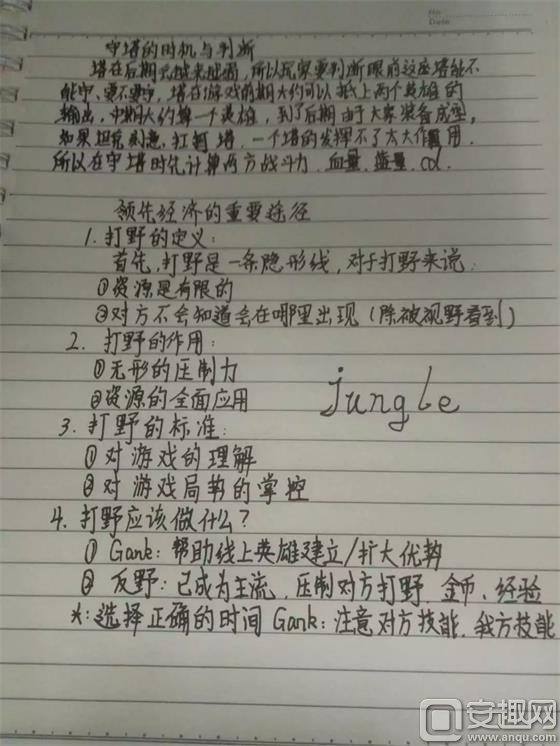 No.
Date
守塔的时机与判断
塔在后期会越来越弱,所以玩家要判断眼前这座塔能不
能守、要不要守,塔在游戏前期大约可以抵上两个英雄的
输出,中期大约算一个英雄,到了后期由于大家装备成型,
如果坦克刻意,打辆塔,一个塔的发挥不了太大作用.
所以在守塔时先计算两方战斗力.血量.蓝量.cd.
领先经济的重要途径
1.打野的定义:
首先,打野是一条隐形线,对于打野来说:
①资源是有限的
②对方不会知道会在哪里出现(除被视野看到)
2.打野的作用:
①无形的压制力
②资源的全面应用
jungle
3.打野的标准:
①对游戏的理解
②对游戏局势的掌控
4.打野应该做什么?
①Gank:帮助线上英雄建立/扩大优势
②反野:已成为主流,压制对方打野 金币、经验
*:选择正确的时间Gank:注意对方技能.我方技能
安趣网
www.anqu.com